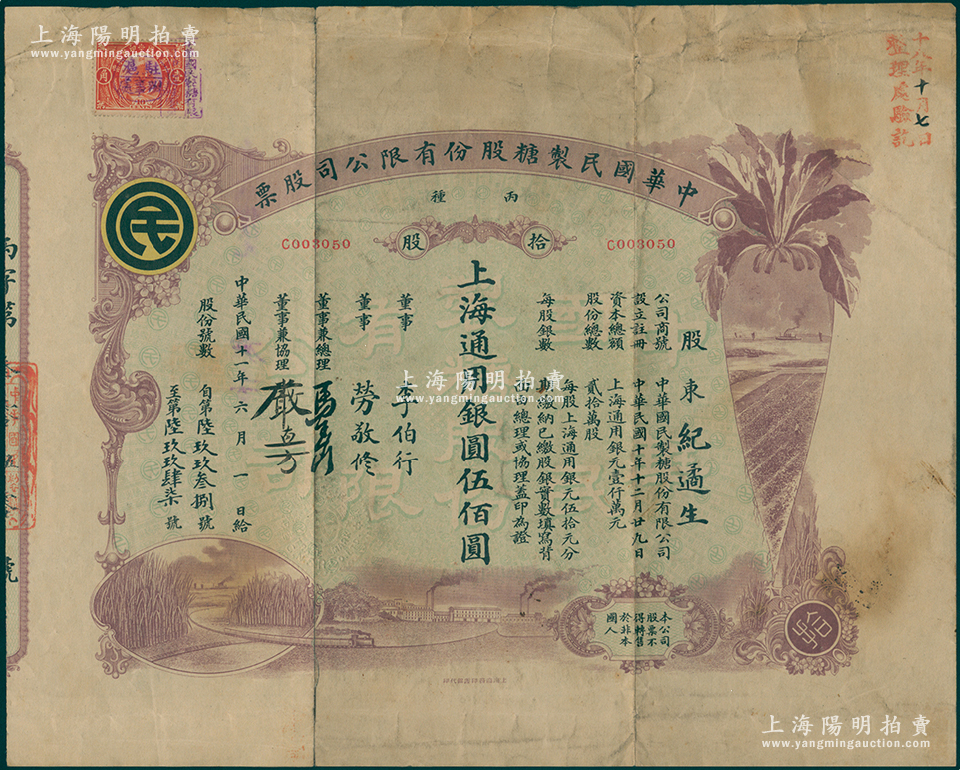 上海陽明拍賣
www.yangmingauction.com
十八年十月七日
整理處驗訖
中華國民製糖股份有限公司股票
丙種
拾股
C003050
C003050
股東紀適生
公司商號 中華國民製糖股份有限公司
設立註冊 中華民國十年十二月廿九日
資本總額 上海通用銀元壹仟萬元
股份總數 貳拾萬股
每股銀數 每股上海通用銀元伍拾元分
期繳納已繳股銀實數填寫背
面由總理或協理蓋印為證
上海通用銀圓伍佰圓
董事 李伯行
董事 勞敬修
董事兼總理 馬玉山
董事兼協理 嚴直方
中華民國十一年六月一日給
股份號數 自第陸玖玖叁捌號
至第陸玖玖肆柒號
丙字第
號
民
本公司
股票不
得轉售
於非本
國人
上海陽明拍賣
www.yangmingauction.com
上海陽明拍賣
www.yangmingauction.com